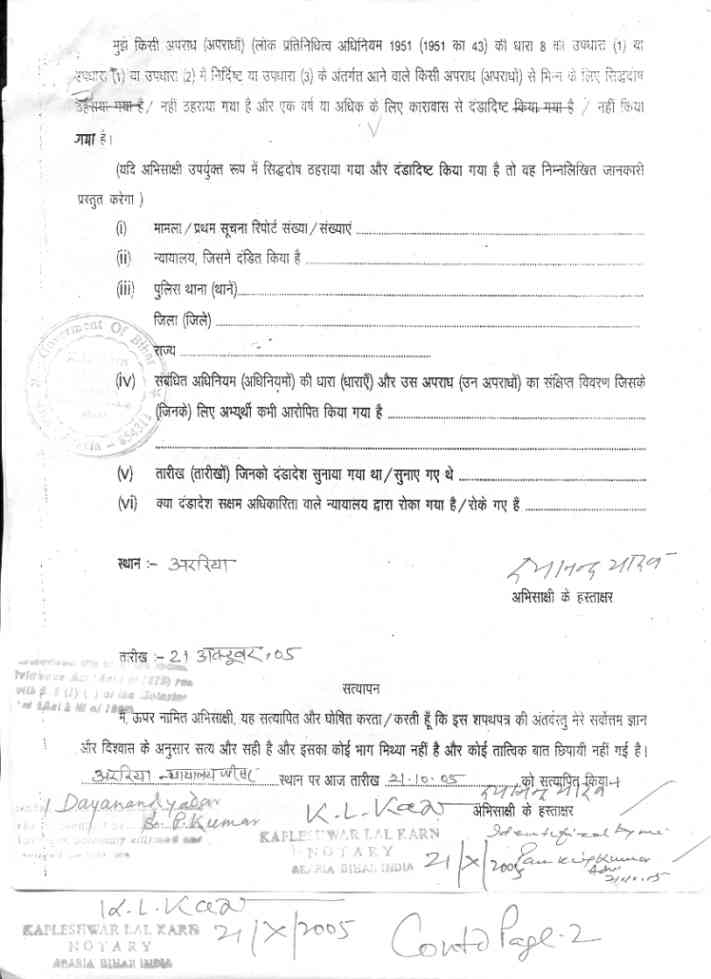 मुझे किसी अपराध (अपराधों) (लोक प्रतिनिधित्व अधिनियम 1951 (1951 का 43) की धारा 8 की उपधारा (1) या
उपधारा (1) या उपधारा (2) में निर्दिष्ट या उपधारा (3) के अंतर्गत आने वाले किसी अपराध (अपराधों) से भिन्न के लिए सिद्धदोष
ठहराया गया है / नहीं ठहराया गया है और एक वर्ष या अधिक के लिए कारावास से दंडादिष्ट किया गया है / नहीं किया
गया है।
(यदि अभिसाक्षी उपर्युक्त रूप में सिद्धदोष ठहराया गया और दंडादिष्ट किया गया है तो वह निम्नलिखित जानकारी
प्रस्तुत करेगा )
(i) मामला / प्रथम सूचना रिपोर्ट संख्या / संख्याएं
(ii) न्यायालय, जिसने दंडित किया है
(iii) पुलिस थाना (थाने)
जिला (जिले)
राज्य
(iv) संबंधित अधिनियम (अधिनियमों) की धारा (धाराएँ) और उस अपराध (उन अपराधों) का संक्षिप्त विवरण जिसके
(जिनके) लिए अभ्यर्थी कभी आरोपित किया गया है
(v) तारीख (तारीखों) जिनको दंडादेश सुनाया गया था / सुनाए गए थे
(vi) क्या दंडादेश सक्षम अधिकारिता वाले न्यायालय द्वारा रोका गया है / रोके गए हैं
Government Of Bihar
स्थान :- अररिया
दयानन्द यादव
अभिसाक्षी के हस्ताक्षर
तारीख :- 21 अक्टूबर, 05
सत्यापन
मैं, ऊपर नामित अभिसाक्षी, यह सत्यापित और घोषित करता / करती हूँ कि इस शपथपत्र की अंतर्वस्तु मेरे सर्वोत्तम ज्ञान
और विश्वास के अनुसार सत्य और सही है और इसका कोई भाग मिथ्या नहीं है और कोई तात्विक बात छिपायी नहीं गई है।
अररिया न्यायालय स्थान पर आज तारीख 21.10.05 को सत्यापित किया।
दयानन्द यादव
अभिसाक्षी के हस्ताक्षर
Dayanand yadav
P. Kumar
K.L.Karn
KAPLESHWAR LAL KARN
NOTARY
ARARIA BIHAR INDIA
21/X/2005
Identified by me
Kumar
21.10.05
K.L.Karn
KAPLESHWAR LAL KARN
NOTARY
ARARIA BIHAR INDIA
21/X/2005
Contd Page-2